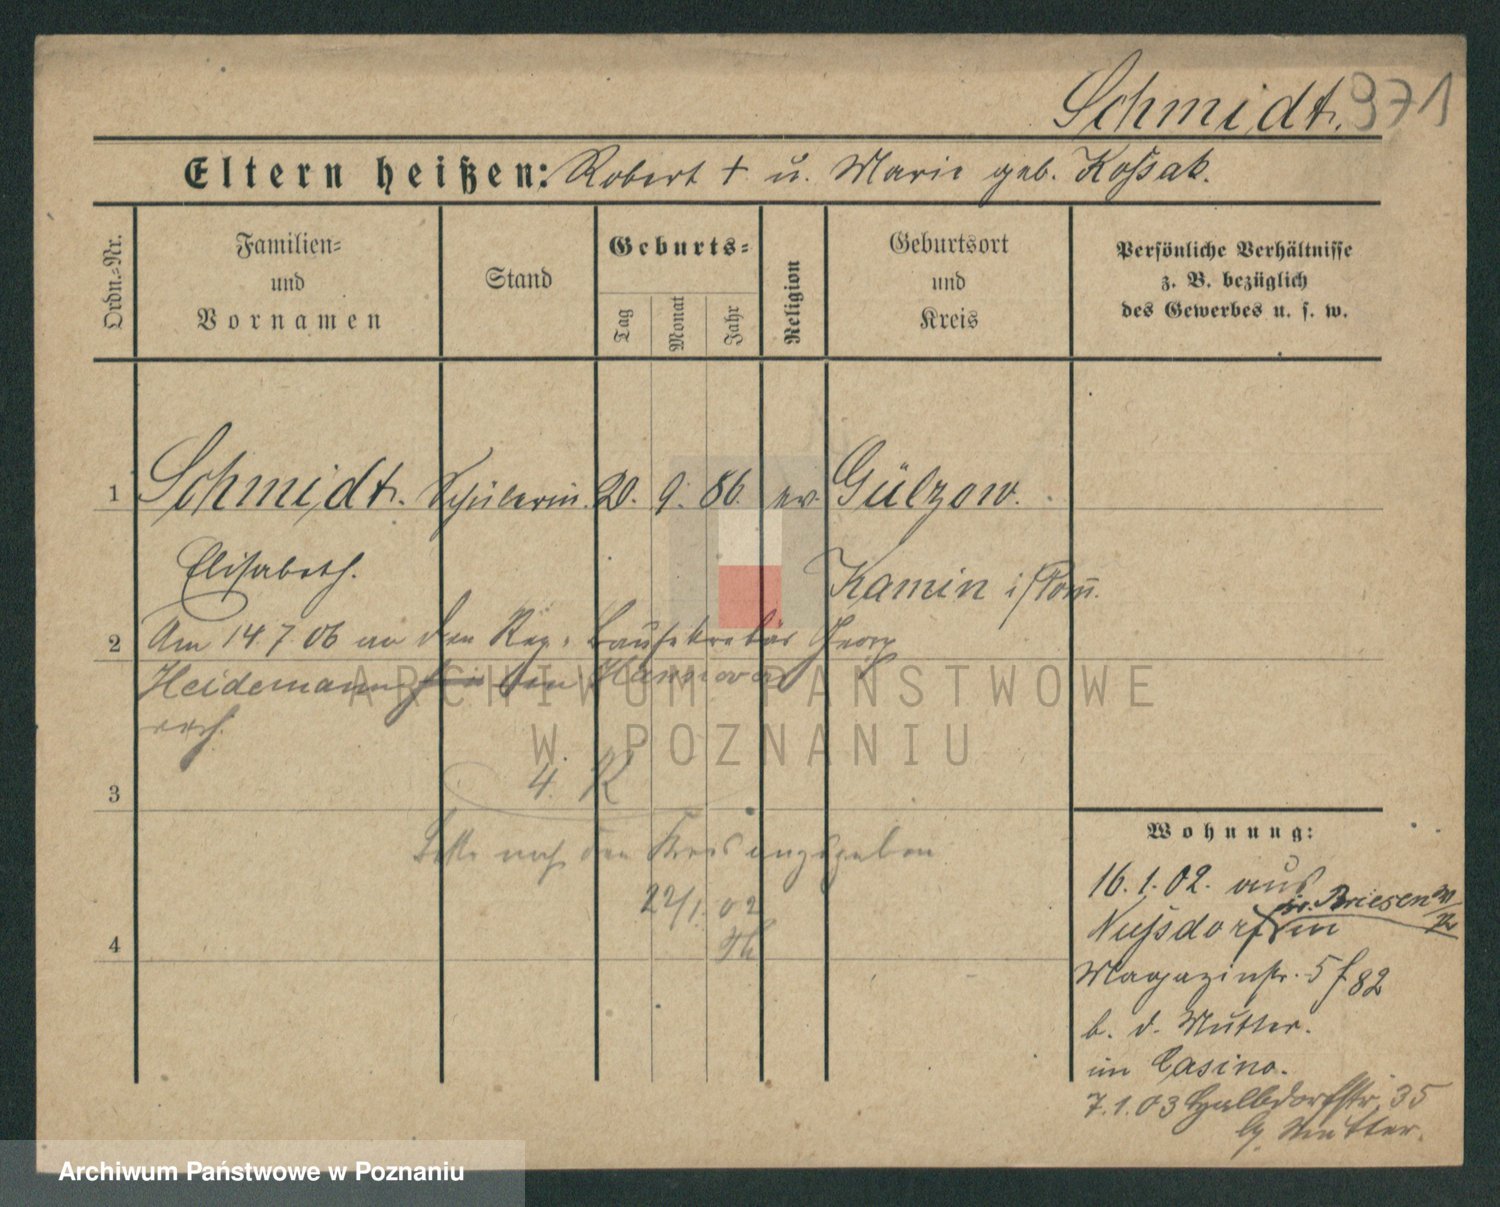 Schmidt. 971
Eltern heißen: Robert + u. Marie geb. Kossak.
Ordn.=Nr.
Familien=
und
Vornamen
Stand
Geburts=
Tag
Monat
Jahr
Religion
Geburtsort
und
Kreis
Persönliche Verhältnisse
z. B. bezüglich
des Gewerbes u. s. w.
1 Schmidt. Schülerin. 20. 9. 86. ev. Gülzow.
Elisabeth.
Kamin i/Pom̅.
2 Am 14.7.06 an den Reg. Bausekretär Georg
Heidemann in Hannover
verh.
3
4. K
Bitte noch den Kreis anzugeben
22/1. 02
4
Wohnung:
16.1.02. aus
Nußdorf Kr. Briesen W/Pr
Magazinstr. 5 f. 82
b. d. Mutter.
im Casino.
7.1.03 Halbdorfstr. 35
b. Mutter.
ARCHIWUM PAŃSTWOWE
W POZNANIU
Archiwum Państwowe w Poznaniu